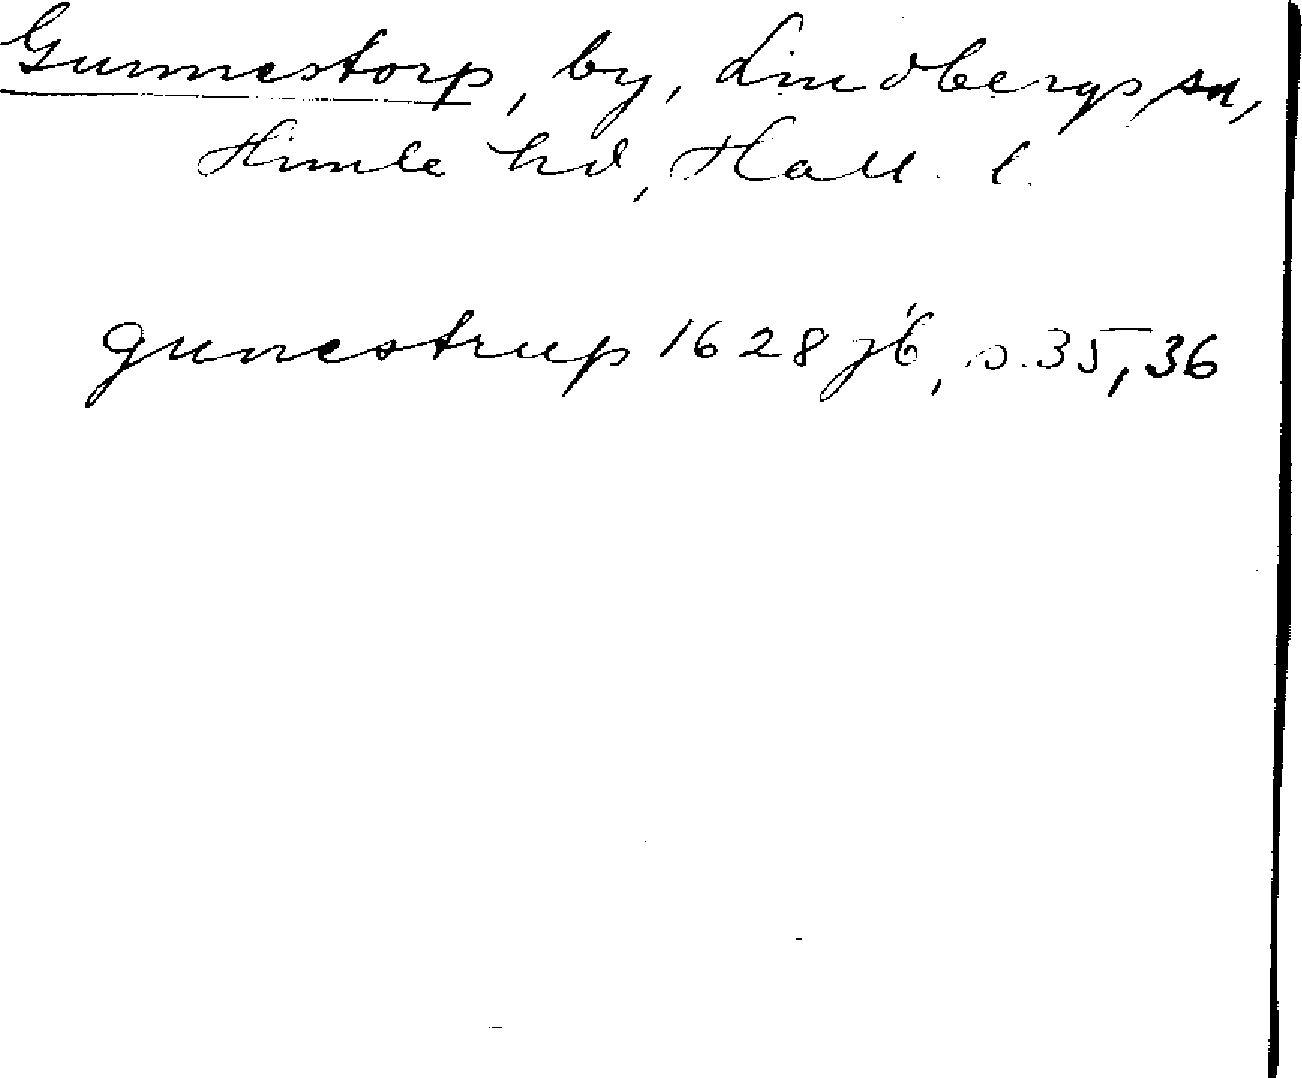 Gunnestorp, by, Lindbergs sn,
Himle hd, Hall. l.
gunestrup 1628 jb, s. 35, 36